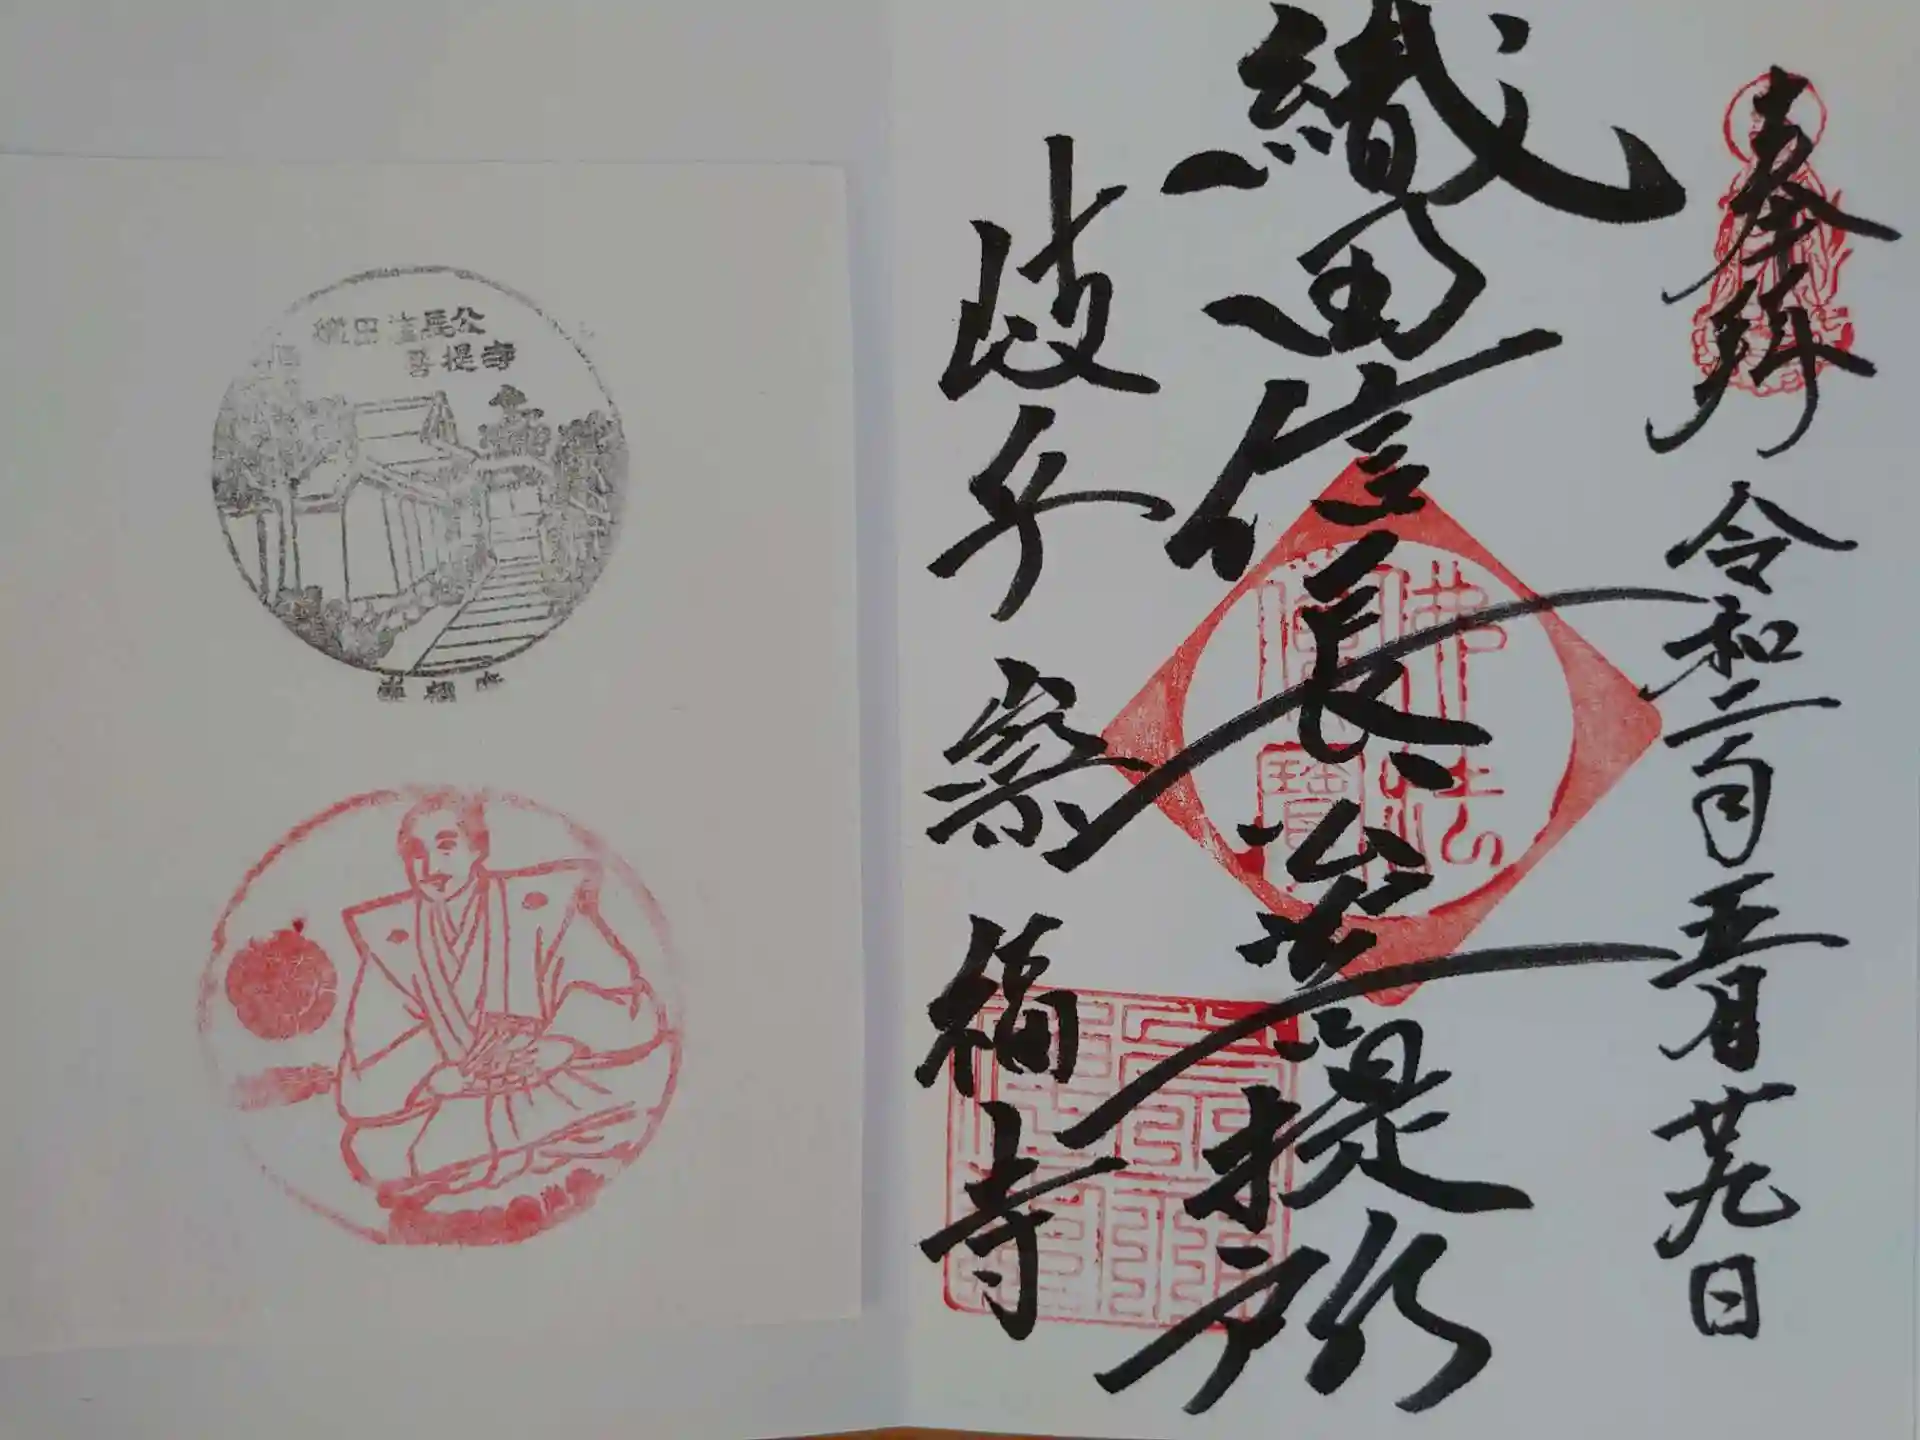 奉拜
令和二年五月廿九日
織田信長公菩提所
岐阜 崇福寺
佛法
僧寶
織田信長公
菩提寺
崇福寺